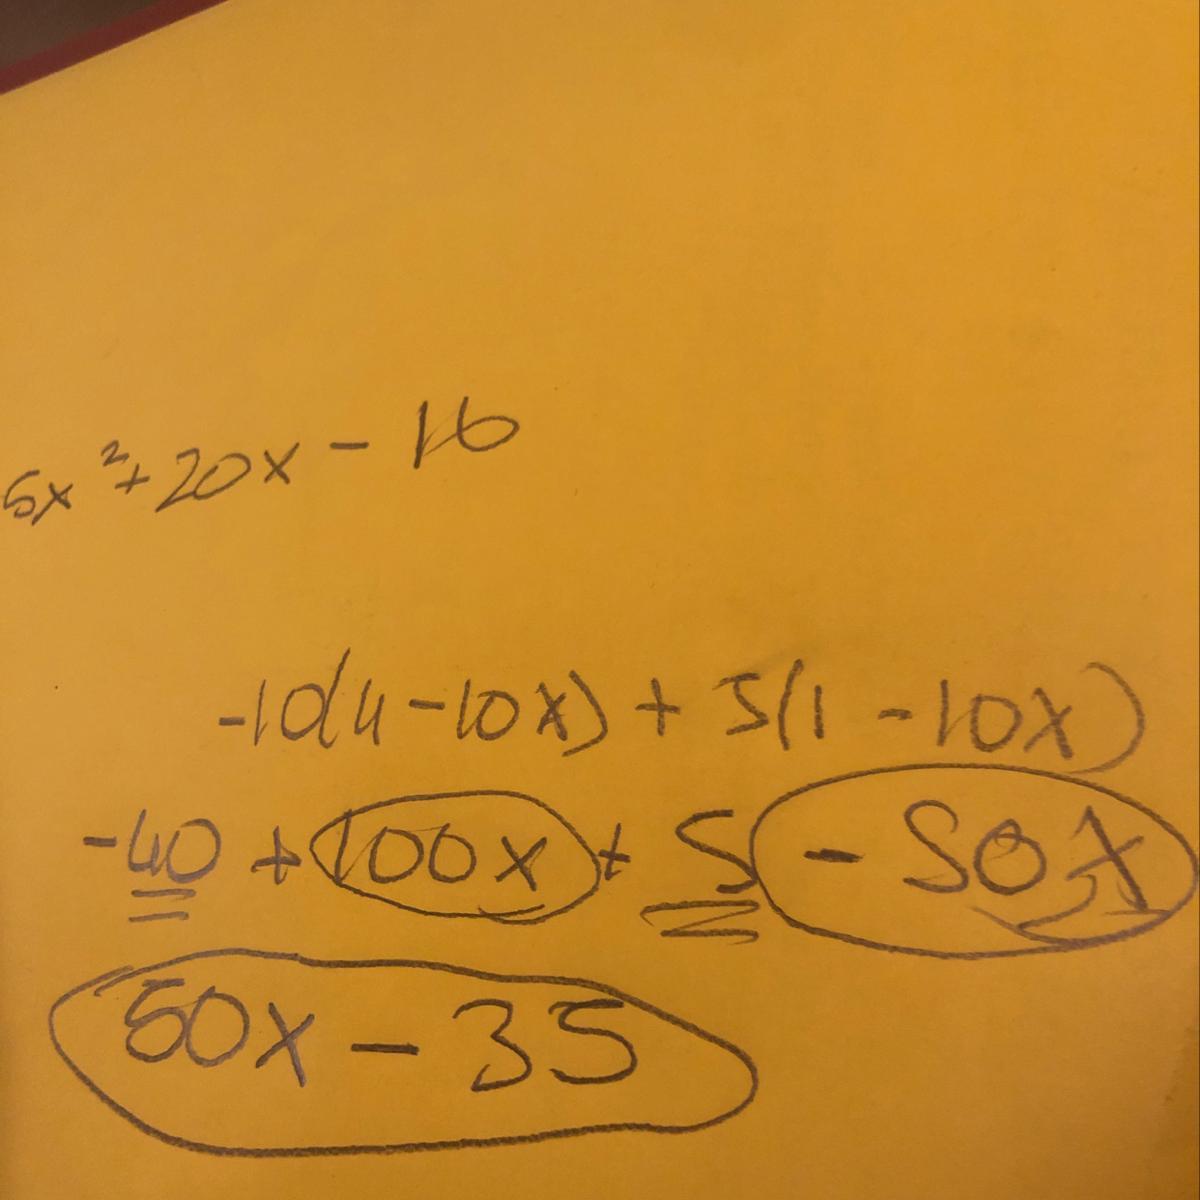 5x²+20x - 16
-10(4 -10x) + 5(1 - 10x)
-40 + 100x + 5 - 50x
50x - 35